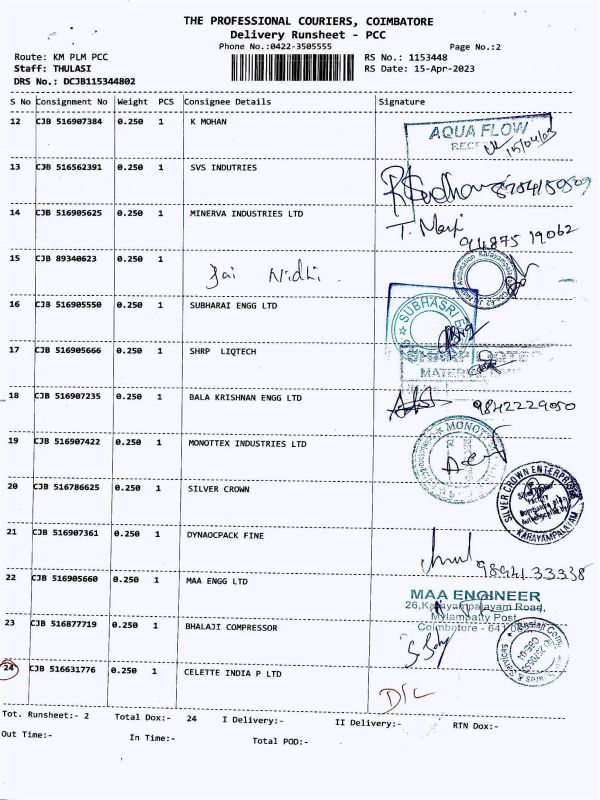 THE PROFESSIONAL COURIERS, COIMBATORE
Delivery Runsheet - PCC
Phone No.:0422-3505555 Page No.:2
Route: KM PLM PCC RS No.: 1153448
Staff: THULASI RS Date: 15-Apr-2023
DRS No.: DCJB115344802
S No Consignment No Weight PCS Consignee Details Signature
12 CJB 516907384 0.250 1 K MOHAN
AQUA FLOW
15/04/03
13 CJB 516562391 0.250 1 SVS INDUTRIES
14 CJB 516905625 0.250 1 MINERVA INDUSTRIES LTD
94875 19062
15 CJB 89340623 0.250 1
Jai Nidhi.
16 CJB 516905550 0.250 1 SUBHARAI ENGG LTD
SUBHASRI
17 CJB 516905666 0.250 1 SHRP LIQTECH
18 CJB 516907235 0.250 1 BALA KRISHNAN ENGG LTD 9842229050
19 CJB 516907422 0.250 1 MONOTTEX INDUSTRIES LTD
20 CJB 516786625 0.250 1 SILVER CROWN
SILVER CROWN ENTERPRISES
KARAYAMPALAYAM
21 CJB 516907361 0.250 1 DYNAOCPACK FINE
98941 33338
22 CJB 516905660 0.250 1 MAA ENGG LTD
MAA ENGINEER
26,Karayampalayam Road,
Mylampatty Post
Coimbatore - 641
23 CJB 516877719 0.250 1 BHALAJI COMPRESSOR
24 CJB 516631776 0.250 1 CELETTE INDIA P LTD
D/L
Tot. Runsheet:- 2 Total Dox:- 24 I Delivery:- II Delivery:- RTN Dox:-
Out Time:- In Time:- Total POD:-